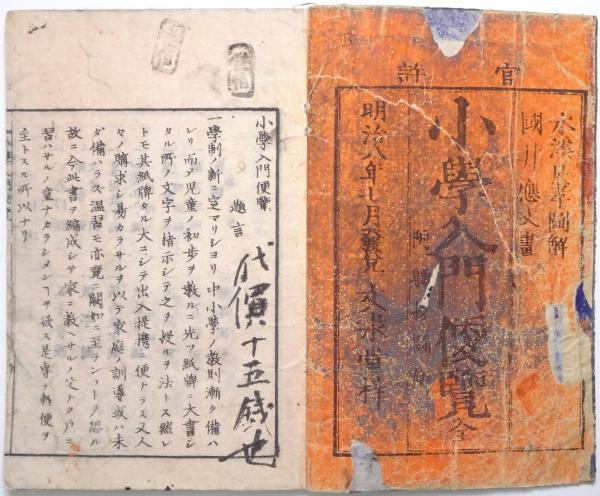 官許
國川應文畫
小學入門便覽 全
明治八年十月發兌 文永堂梓
小學入門便覽
題言
一學制ノ新ニ定マリシヨリ中小學ノ教則漸ク備ハ
レリ而シテ兒童ノ初歩ヲ教ルニ先ツ紙牌ニ大書シ
タル所ノ文字ヲ指示シテ之ヲ授ルヲ法トス然レ
トモ其紙牌タル大ニシテ出入提携ニ便ナラス又人
々ノ購求シ易カラサルヲ以テ家庭ノ訓導或ハ未
タ備ハラズ温習モ亦竟ニ闕如ニ至ランコトヲ恐ル
故ニ今此書ヲ編成シテ家ニ教ヘサルノ父ナク戸ニ
習ハサルノ童ナカラシメンコヲ欲ス是專ラ輕便ヲ
主トスル所以ナリ
代價十五錢也